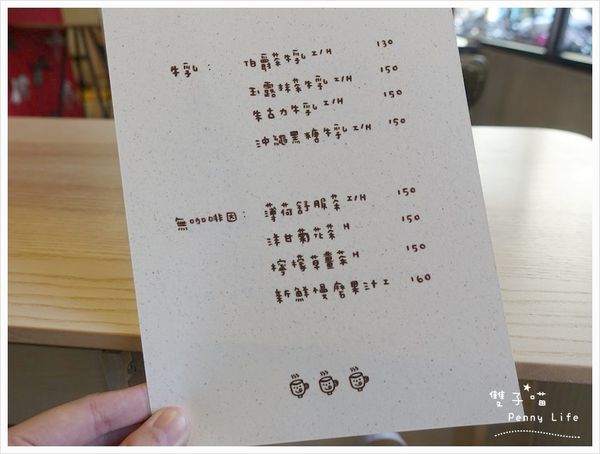 牛乳： 伯爵茶牛乳 I/H 130
玉露抹茶牛乳 I/H 150
朱古力牛乳 I/H 150
沖繩黑糖牛乳 I/H 150
無咖啡因： 薄荷舒服茶 I/H 150
洋甘菊花茶 H 150
檸檬草薑茶 H 150
新鮮慢磨果汁 I 160
雙子喵
Penny Life